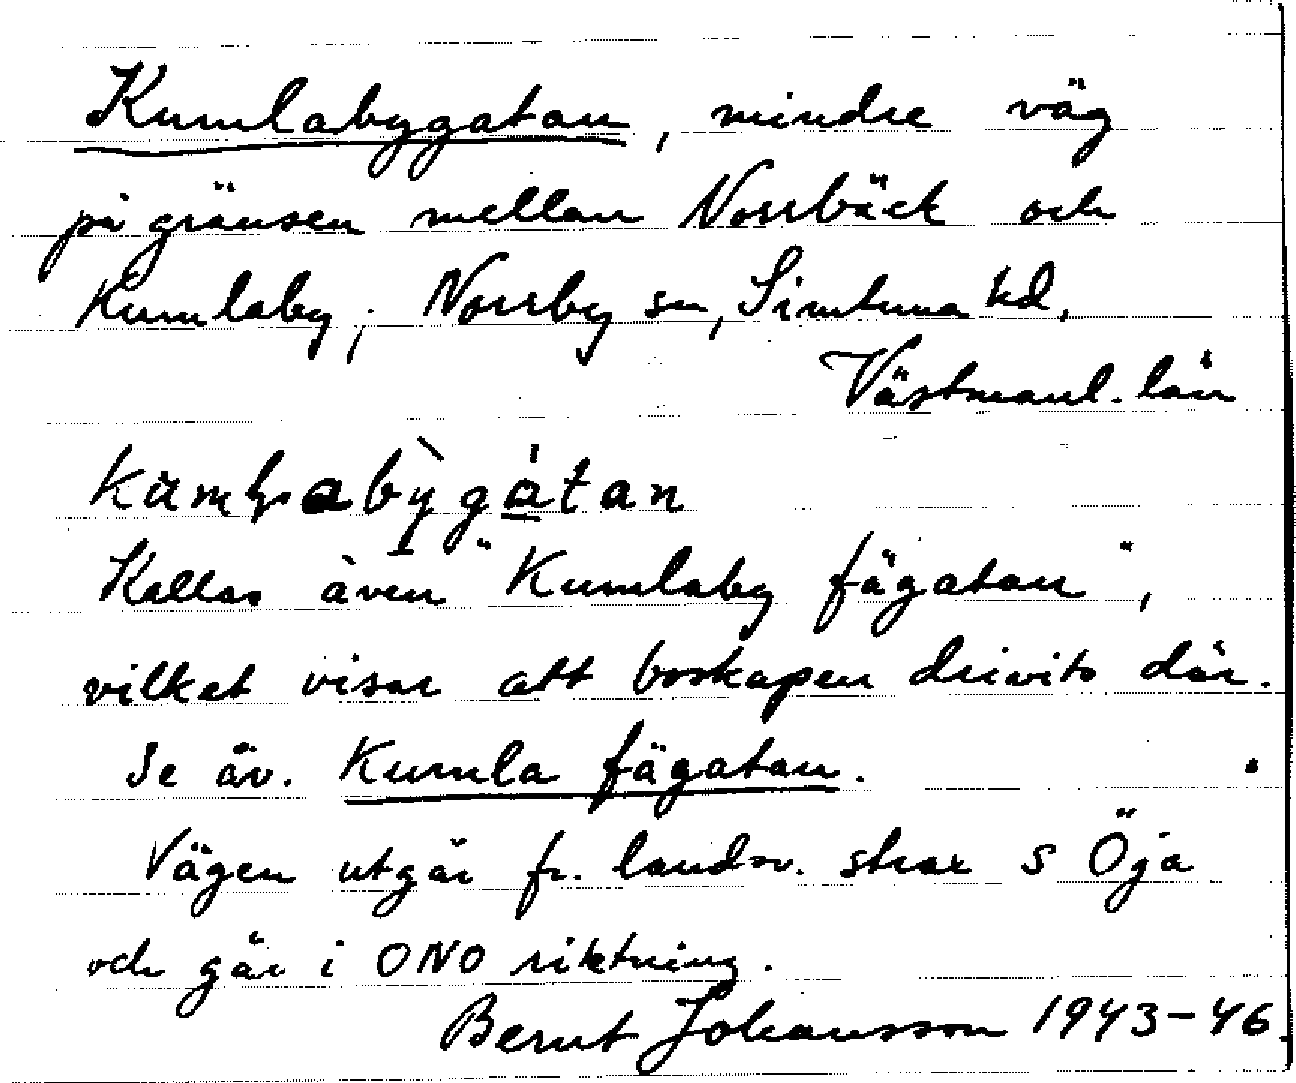 Kumlabygatan, mindre väg
på gränsen mellan Norrbäck och
Kumlaby, Norrby sn, Simtuna hd,
Västmanl. län
Kallas även "Kumlaby fägatan",
vilket visar att boskapen drivits där.
Se äv. Kumla fägatan.
Vägen utgår fr. landsv. strax S Öja
och går i ONO riktning.
Bernt Johansson 1943-46.